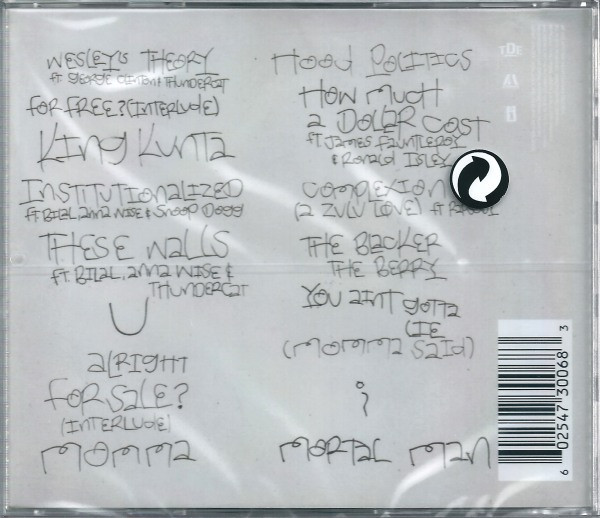 WESLEY'S THEORY
ft GEORGE CLINTON & THUNDERCAT
FOR FREE? (INTERLUDE)
KING KUNTA
INSTITUTIONALIZED
ft. BILAL, ANNA WISE & SNOOP DOGG
THESE WALLS
ft. BILAL, ANNA WISE &
THUNDERCAT
U
ALRIGHT
FOR SALE?
(INTERLUDE)
MOMMA
HOOD POLITICS
HOW MUCH
A DOLLAR COST
ft. JAMES FAUNTLEROY
& RONALD ISLEY
COMPLEXION
(A ZULU LOVE) ft
THE BLACKER
THE BERRY
YOU AINT GOTTA
LIE
(MOMMA SAID)
i
MORTAL MAN
TDE
6 02547 30068 3